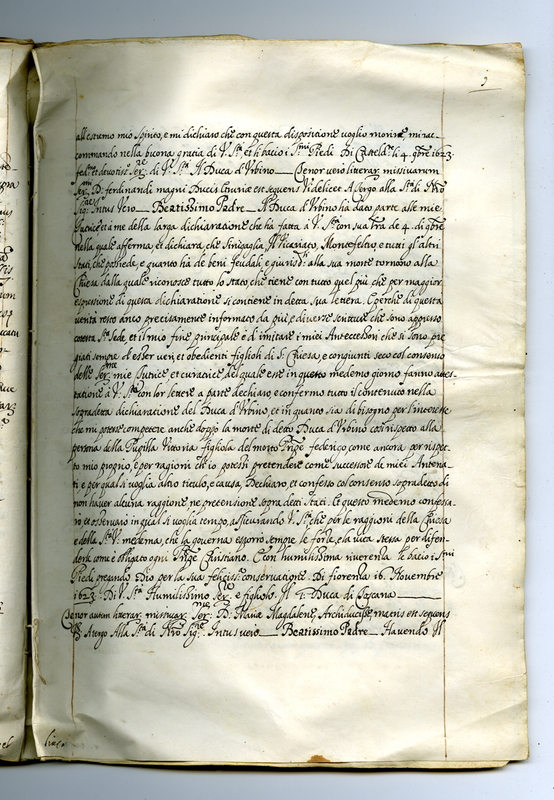 all'estremo mio Spirito, e mi dichiaro che con questa dispositione voglio morire, mi rac-
commando nella buona gratia di V. Stà. et li bacio i Smi Piedi Di Casteldte li 4. 9bre 1623.
di V. Sta Il Duca d'Urbino Tenor vero literar. missivarum
D. ferdinandi magni Ducis Etruriæ est sequens Videlicet A tergo alla Stà. di Nro
Sigre Intus Vero Beatissimo Padre Il Duca d'Urbino hà dato parte alle mie
Tutrici et à me della larga dichiaratione che hà fatta à V. Stà con sua lra de 4. di 9bre
nella quale afferma, et dichiara, che Sinigaglia, Il Vicariato, Montefeltro, e tutti gl'altri
Stati, che possiede, e quanto hà de beni feudali, e giurisdni alla sua morte tornino alla
Chiesa dalla quale riconosce tutto lo Stato, che tiene con tutto quel più che per maggior
espressione di questa dichiaratione si contiene in detta Sua lettera. E perche di questa
verità resto anco precisamente informato da più, e diverse scritture che sono appresso
cotesta Sta Sede, et il mio fine principale è d'imitare i miei Antecessori che si sono pre
giati sempre d'esser veri, et obedienti figlioli di S. Chiesa, e congiunti seco col consenso
delle Serme mie Tutrici et curatrici del quale esse in questo medemo giorno fanno attes-
tatione à V. Stà con lor lettere à parte dechiaro e confermo tutto il contenuto nella
sopradetta dichiaratione del Duca d'Urbino, et in quanto sia di bisogno per l'interesse
che mi potesse competere anche doppò la morte di detto Duca d'Urbino così rispetto alla
persona della Pupilla Vittoria figliola del morto Prnpe federigo, come ancora per rispet-
to mio proprio, e per ragioni ch'io potessi pretendere come successore de miei Antena-
ti e per qual si voglia altro titulo, e causa, Dechiaro, et confesso col consenso sopradetto di
non haver alcuna raggione ne pretensione sopra detti Stati. Et questo medemo confessa-
rò, et osservarò in qual si voglia tempo, assicurando V. Stà che per le raggioni della Chiesa
e della Stà V. medema, che la governa esporrò sempre le forze, e la vita stessa per difen-
derle come è obligato ogni Prnpe Christiano. E con humilissima riverenza le bacio i Smi
Piedi pregando Dio per la sua felicissa conservatione. Di fiorenza 16. Novembre
1623. Di V. Sta Humilissimo Serre e figliolo. Il G. Duca di Toscana
Tenor autem literar. missivar. Serme D. Mariæ Magdalene, Archiducisse matris est sequens
A tergo Alla Stà di Nro Sigre. Intus vero Beatissimo Padre Havendo Il